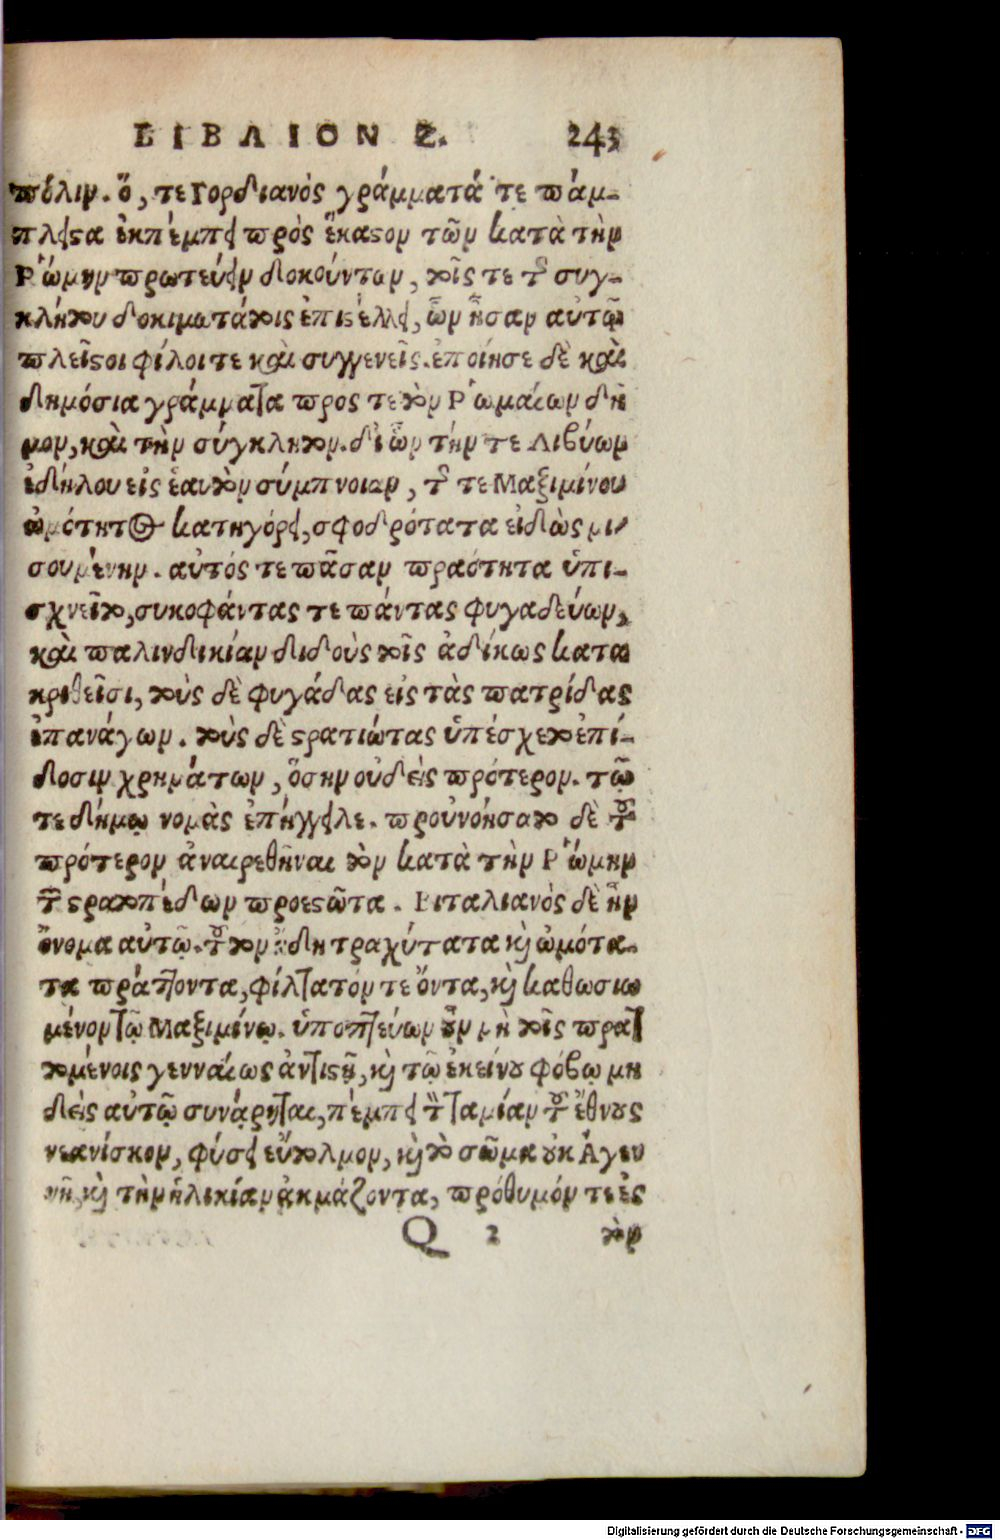 ΒΙΒΛΙΟΝ Ζ. 243
πόλιν. ὅ, τε Γορδιανὸς γράμματά τε πάμ-
πλειστα ἐκπέμπει πρὸς ἕκαστον τῶν κατὰ τὴν
Ῥώμην πρωτεύειν δοκούντων, τοῖς τε τῆς συγ-
κλήτου δοκιμωτάτοις ἐπιστέλλει, ὧν ἦσαν αὐτῷ
πλεῖστοι φίλοι τε καὶ συγγενεῖς. ἐποίησε δὲ καὶ
δημόσια γράμματα πρὸς τε τὸν Ῥωμαίων δῆ
μον, καὶ τὴν σύγκλητον. δι ὧν τήν τε Λιβύων
ἐδήλου εἰς ἑαυτὸν σύμπνοιαν, τῆς τε Μαξιμίνου
ὠμότητος κατηγόρει, σφοδρότατα εἰδὼς μι-
σουμένην. αὐτός τε πᾶσαν πραότητα ὑπι-
σχνεῖτο, συκοφάντας τε πάντας φυγαδεύων,
καὶ παλινδικίαν διδοὺς τοῖς ἀδίκως κατα
κριθεῖσι, τοὺς δὲ φυγάδας εἰς τὰς πατρίδας
ἐπανάγων. τοὺς δὲ στρατιώτας ὑπέσχετο ἐπί-
δοσιν χρημάτων, ὅσην οὐδεὶς πρότερον. τῷ
τε δήμῳ νομὰς ἐπήγγειλε. προὐνοήσατο δὲ τοῦ
πρότερον ἀναιρεθῆναι τὸν κατὰ τὴν Ῥώμην
τῶν στρατοπέδων προεστῶτα. Βιταλιανὸς δὲ ἦν
ὄνομα αὐτῷ. τοῦτον ᾔδη τραχύτατα καὶ ὠμότα-
τα πράττοντα, φίλτατόν τε ὄντα, καὶ καθωσιω
μένον τῷ Μαξιμίνῳ. ὑποπτεύων οὖν μὴ τοῖς πρατ
τομένοις γενναίως ἀντιστῇ, καὶ τῷ ἐκείνου φόβῳ μη
δεὶς αὐτῷ συνάρηται, πέμπει τὸν ταμίαν τοῦ ἔθνους
νεανίσκον, φύσει εὔτολμον, καὶ τὸ σῶμα οὐκ ἀγεν
νῆ, καὶ τὴν ἡλικίαν ἀκμάζοντα, πρόθυμόν τε ἐς
Q 2 τὸν
Digitalisierung gefördert durch die Deutsche Forschungsgemeinschaft - DFG